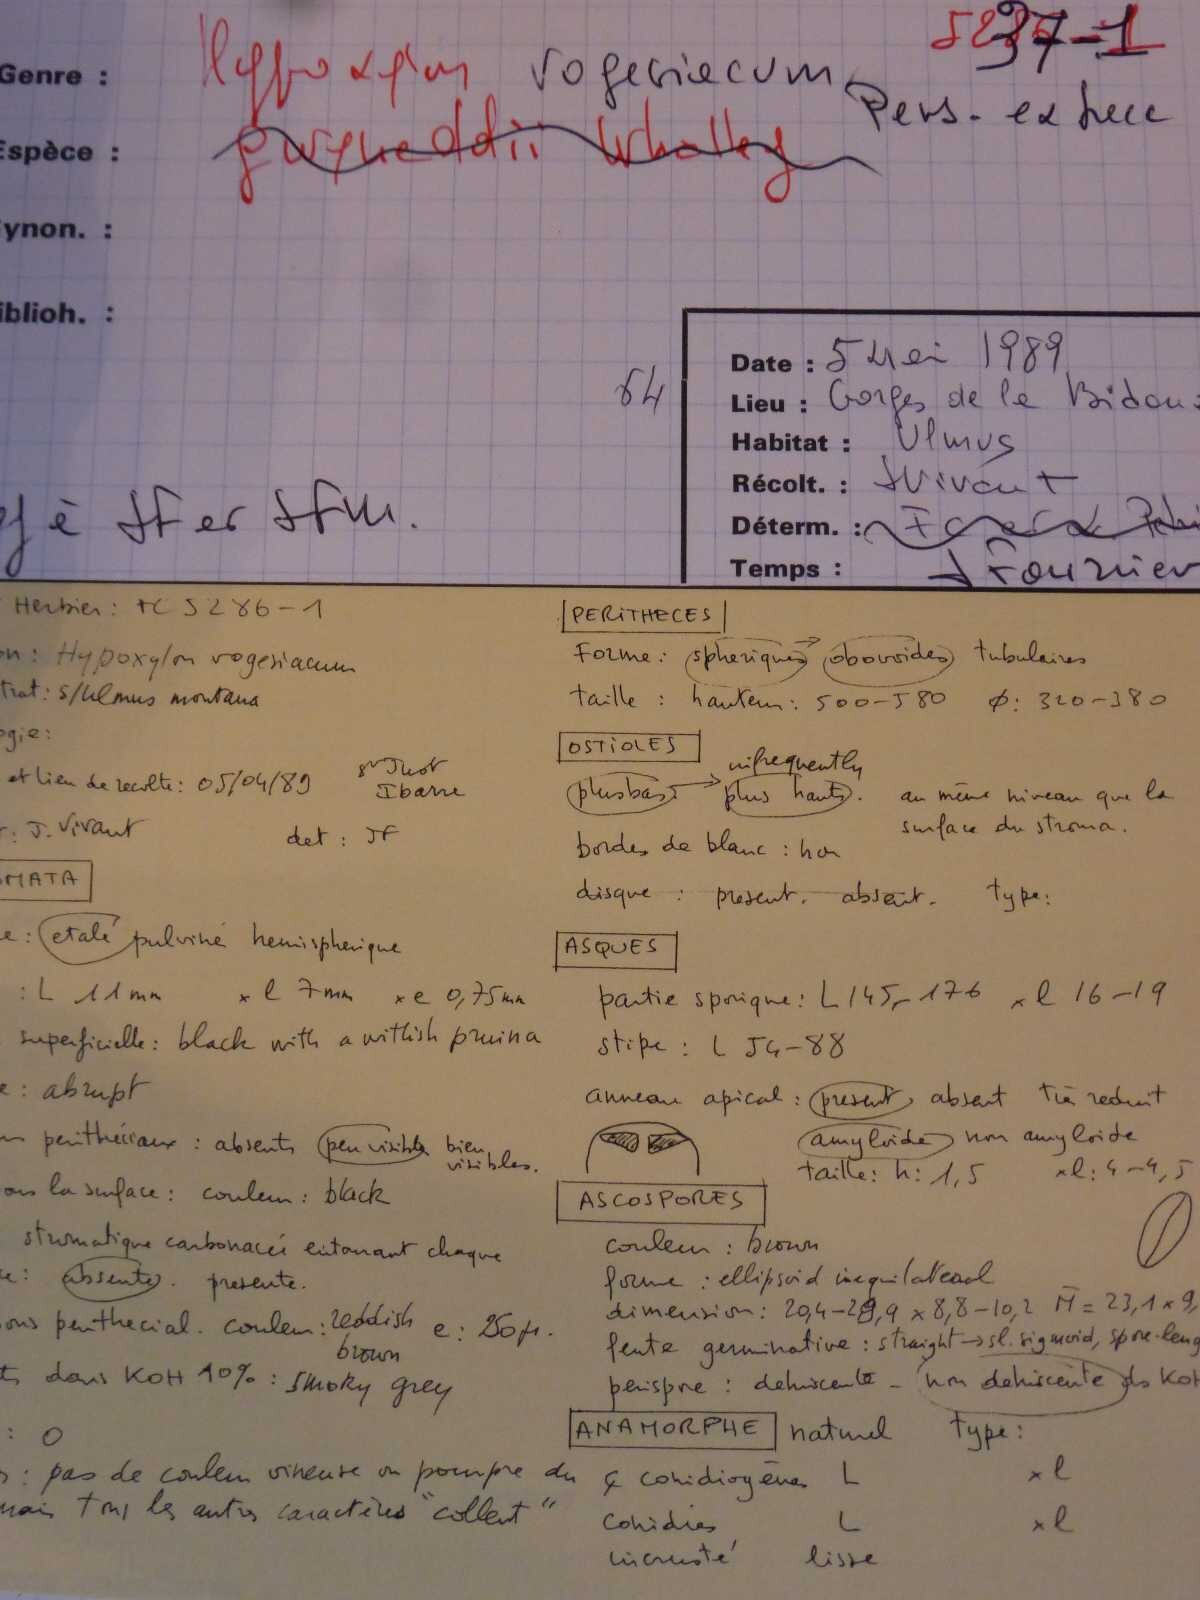 37-1
Genre : Hypoxylon vogesiacum
Pers. ex
Espèce : gwyneddii Whalley
ynon. :
iblioh. :
64
Date : 5 Mei 1989
Lieu : Gorges de la Bidous
Habitat : Ulmus
Récolt. : J Vivant
Déterm. :
Temps : J Fournier
JF et JFM.
Herbier: FC 5286-1
on: Hypoxylon vogesiacum
trat: s/Ulmus montana
ogie:
et lieu de récolte: 05/04/89 St Just Ibarre
: J. Vivant det : JF
OMATA
e: etalé pulviné hemispherique
: L 11mm x l 7mm x e 0,75mm
superficielle: black with a witlish pruina
e: abrupt
ns périthéciaux : absents peu visibles bien visibles.
ous la surface: couleur: black
stromatique carbonacée entourant chaque
ce: absente. presente.
ous perithecial. couleur: reddish brown e: 250µ.
ts dans KOH 10% : smoky grey
: 0
s: pas de couleur vineuse ou pourpre du
mais tous les autres caractères "collent"
PERITHECES
Forme: spheriques → obovoides tubulaires
taille : hauteur: 500-580 ø: 320-380
OSTIOLES
plus bas → infrequently plus hauts. au même niveau que la
surface du stroma.
bordes de blanc : non
disque : present. absent. type:
ASQUES
partie sporique: L 145-176 x l 16-19
stipe : L 54-88
anneau apical: present absent très réduit
amyloïde non amyloïde
taille: h: 1,5 x l: 4-4,5
ASCOSPORES
couleur : brown
forme : ellipsoid inequilateral
dimension: 20,4-29,9 x 8,8-10,2 M = 23,1 x 9,
fente germinative : straight → sl. sigmoid, spore-leng
périspore : dehiscente - non dehiscente ds KOH
ANAMORPHE naturel type:
ç conidiogènes L x l
conidies L x l
incrusté lisse